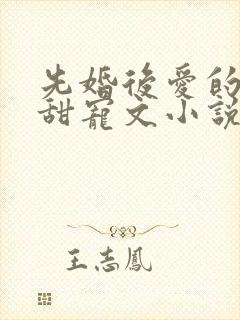 先婚後愛的
甜寵文小說
王志鳳